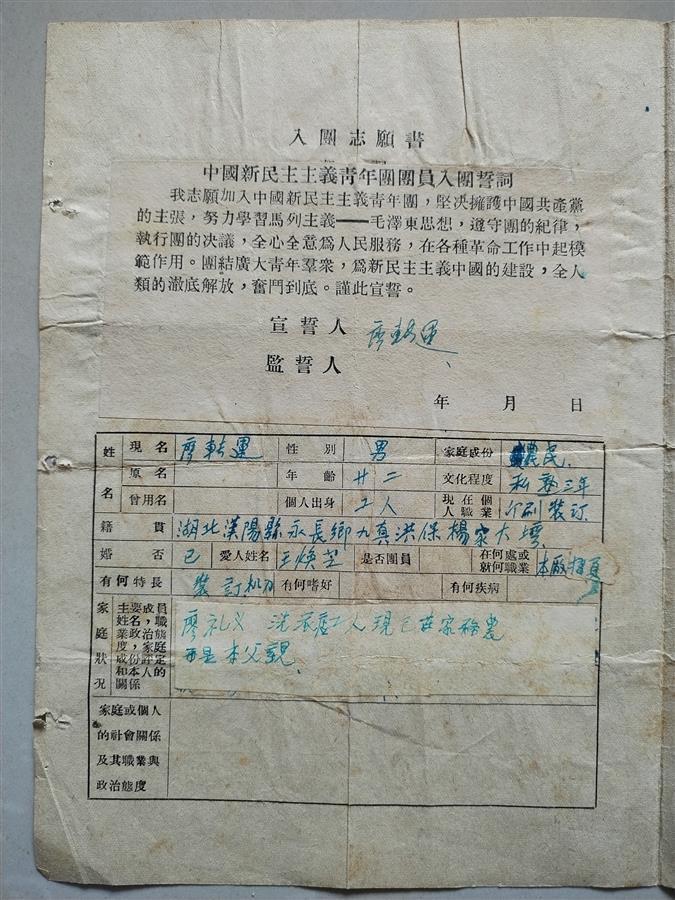 入團志願書
中國新民主主義靑年團團員入團誓詞
我志願加入中國新民主主義靑年團，堅决擁護中國共產黨
的主張，努力學習馬列主義——毛澤東思想，遵守團的紀律，
執行團的决議，全心全意爲人民服務，在各種革命工作中起模
範作用。團結廣大靑年羣衆，爲新民主主義中國的建設，全人
類的澈底解放，奮鬥到底。謹此宣誓。
宣誓人 廖転運
監誓人
年 月 日
姓名 現名 廖転運 性別 男 家庭成份 農民
原名 年齡 廿二 文化程度 私塾三年
曾用名 個人出身 工人 現在個人職業 印刷裝訂
籍貫 湖北漢陽縣永長鄉九真洪保楊家大塆
婚否 已 愛人姓名 王煥芝 是否團員 在何處或就何職業 本廠摺頁
有何特長 裝訂机刀 有何嗜好 有何疾病
家庭狀況 主要成員姓名，職業政治態度，家庭成份評定和本人的關係 廖礼义 洗衣店工人現已在家務農
而是本父親
家庭或個人
的社會關係
及其職業與
政治態度